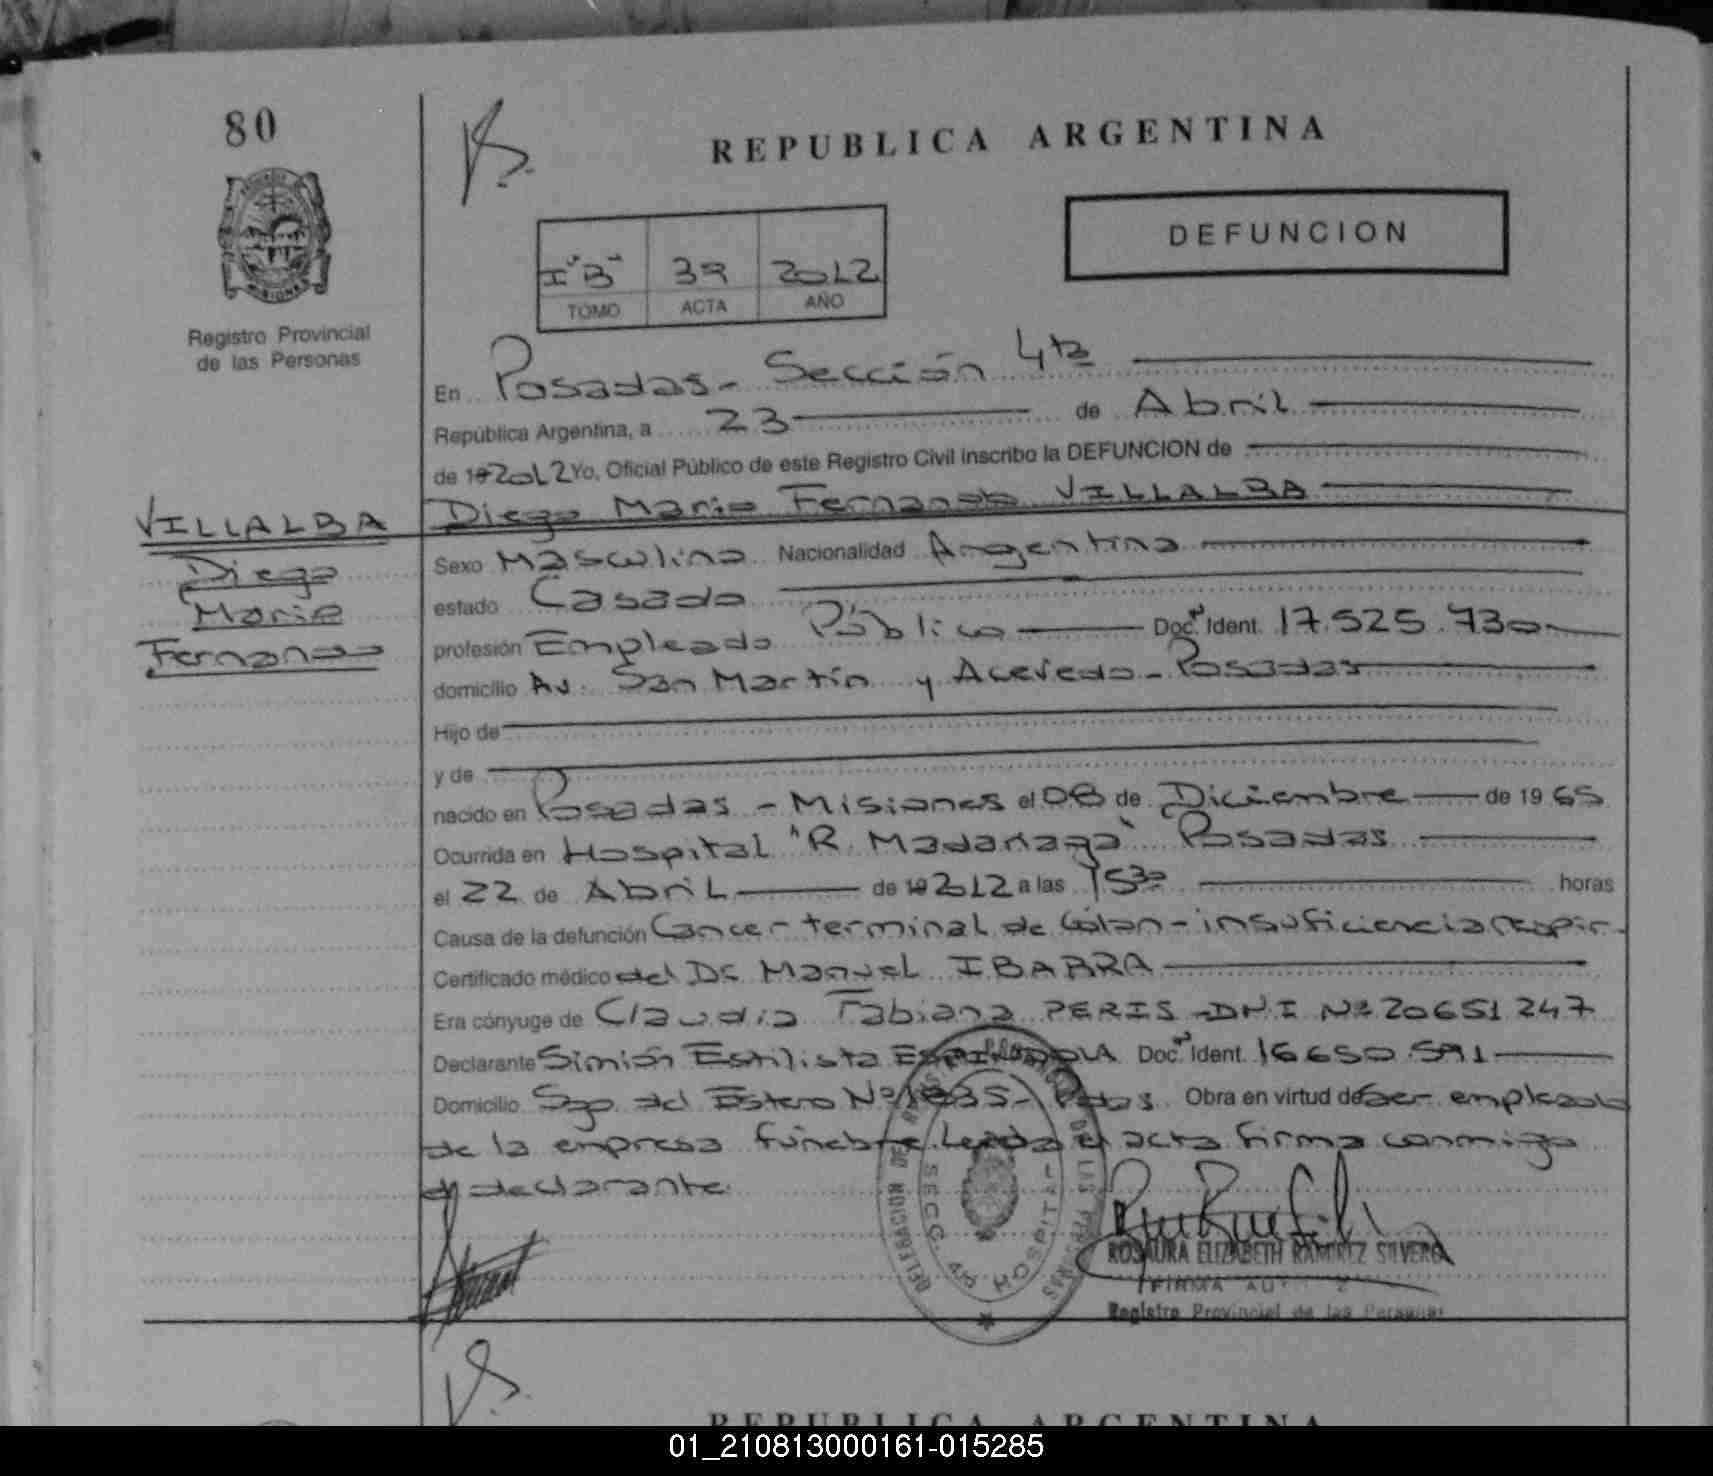 80
REPUBLICA ARGENTINA
DEFUNCION
I "B" 39 2012
TOMO ACTA AÑO
MISIONES
Registro Provincial
de las Personas
En Posadas - Sección 4ta
República Argentina, a 23 de Abril
de 19 2012 Yo, Oficial Público de este Registro Civil inscribo la DEFUNCION de
Diego Mario Fernando VILLALBA
VILLALBA
Diego
Mario
Fernando
Sexo Masculino Nacionalidad Argentina
estado Casado
profesión Empleado Público Doc. Ident. 17.525.730
domicilio Av. San Martín y Acevedo - Posadas
Hijo de
y de
nacido en Posadas - Misiones el 08 de Diciembre de 19 65
Ocurrida en Hospital "R. Madariaga" Posadas
el 22 de Abril de 19 2012 a las 15 30 horas
Causa de la defunción Cancer terminal de Colon - insuficiencia respir.
Certificado médico del Dr Manuel IBARRA
Era cónyuge de Claudia Fabiana PERIS - DNI Nº 20651247
Declarante Simión Estilista ESPINDOLA Doc. Ident. 16650.591
Domicilio Sgo del Estero Nº 1835 - Pdas. Obra en virtud de ser empleado
de la empresa fúnebre. Leida el acta firma conmigo
el declarante.
DELEGACION DEL REGISTRO PROVINCIAL DE LAS PERSONAS
SECC. 4ta HOSPITAL
ROSAURA ELIZABETH RAMIREZ SILVERO
FIRMA AUT
Registro Provincial de las Personas
REPUBLICA ARGENTINA
01_210813000161-015285